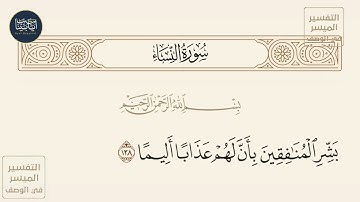 التفسير
الميسر
في الوصف
سُورَةُ النِّسَاءِ
بِسْمِ اللَّهِ الرَّحْمَٰنِ الرَّحِيمِ
بَشِّرِ الْمُنَافِقِينَ بِأَنَّ لَهُمْ عَذَابًا أَلِيمًا ١٣٨
التفسير
الميسر
في الوصف